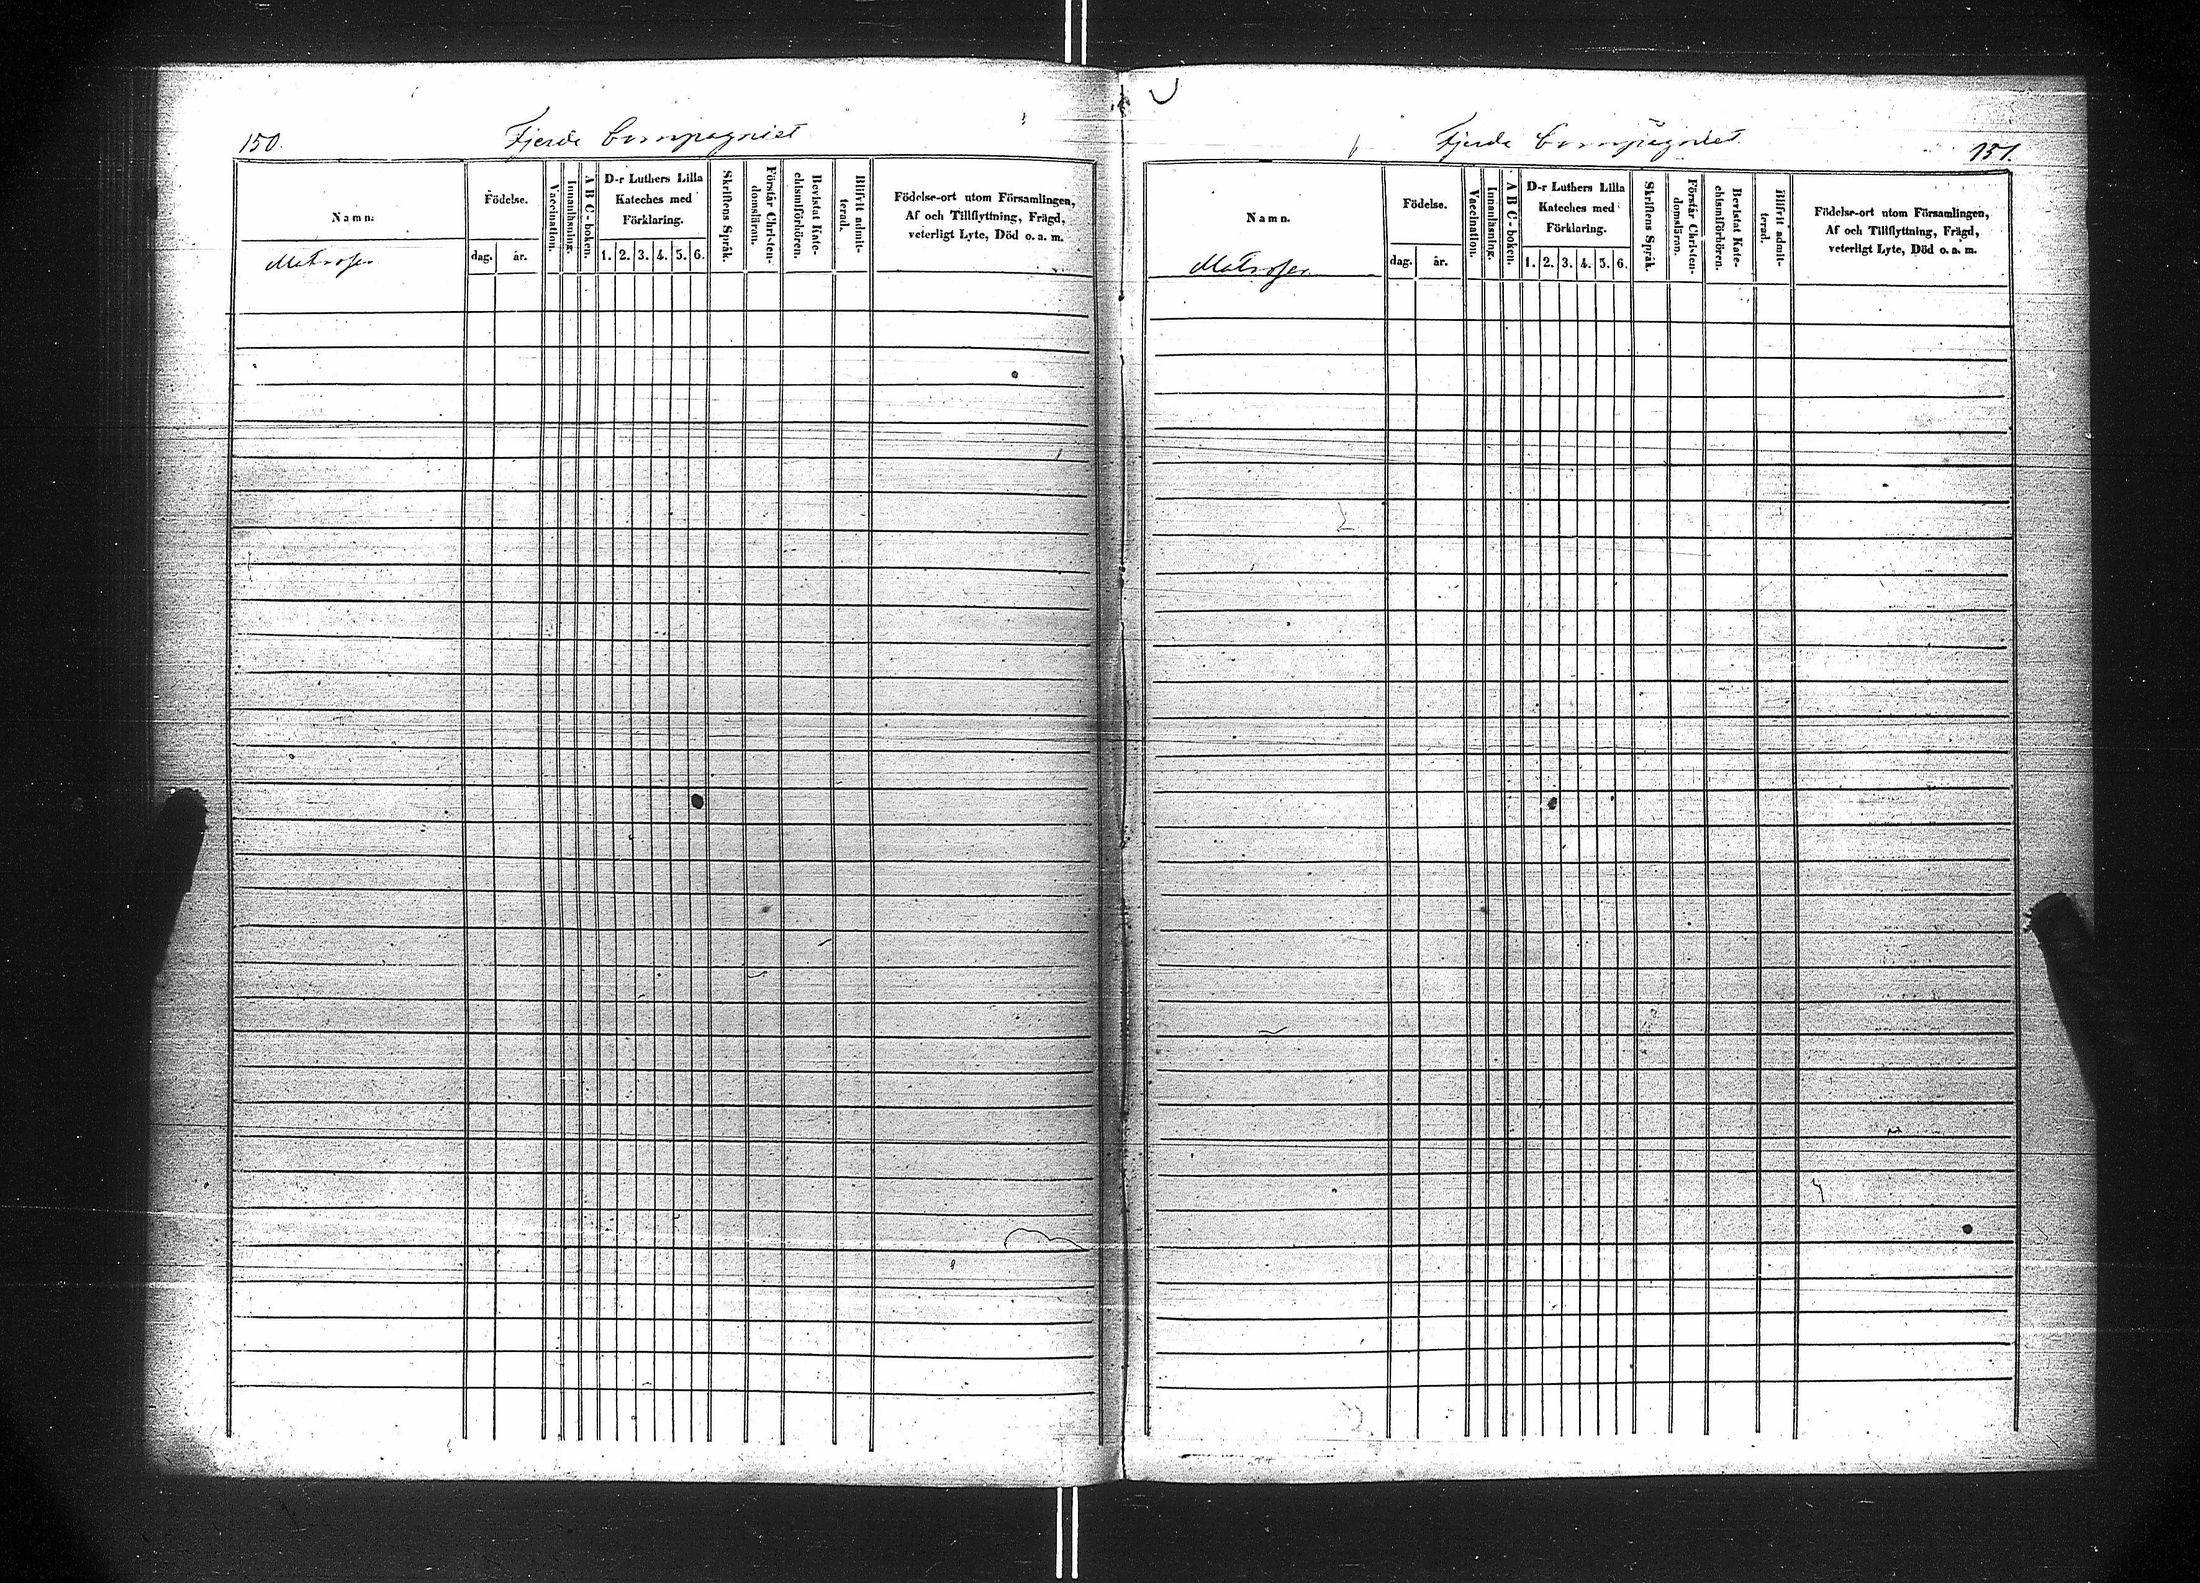 150.
Fjerde Compagniet
Namn.
Födelse.
dag.
år.
Vaccination.
Innanläsning.
A B C-boken.
D-r Luthers Lilla
Kateches med
Förklaring.
1. 2. 3. 4. 5. 6.
Skriftens Språk.
Förstår Christen-
domsläran.
Bevistat Kate-
chismiförhören.
Blifvit admit-
terad.
Födelse-ort utom Församlingen,
Af och Tillflyttning, Frägd,
veterligt Lyte, Död o. a. m.
Matroser
Fjerde Compagniet
151.
Namn.
Födelse.
dag.
år.
Vaccination.
Innanläsning.
A B C-boken.
D-r Luthers Lilla
Kateches med
Förklaring.
1. 2. 3. 4. 5. 6.
Skriftens Språk.
Förstår Christen-
domsläran.
Bevistat Kate-
chismiförhören.
Blifvit admit-
terad.
Födelse-ort utom Församlingen,
Af och Tillflyttning, Frägd,
veterligt Lyte, Död o. a. m.
Matroser